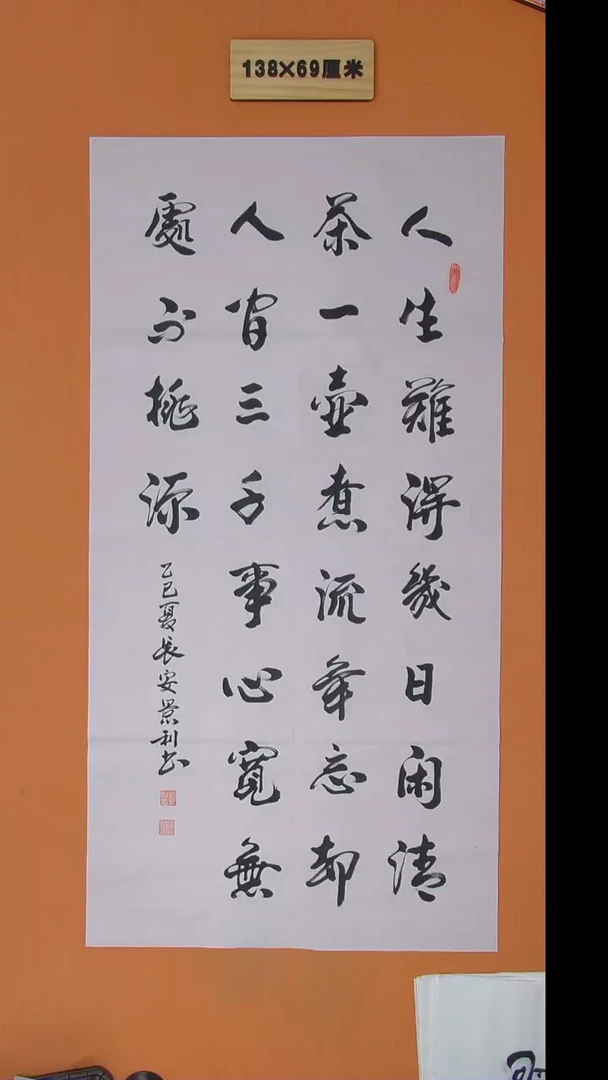 138×69厘米
人生難得幾日闲清
茶一壺煮流年忘却
人间三千事心寬無
處不桃源
乙巳夏长安景利书